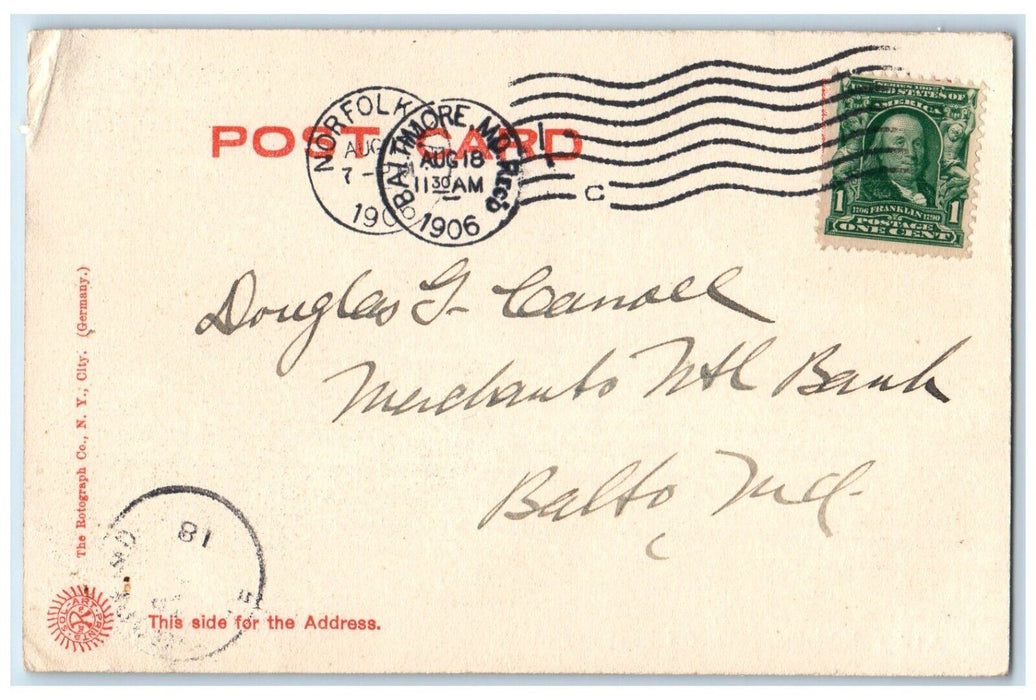 POST CARD
NORFOLK
AUG
7-
190
BALTIMORE, MD. REC'D
AUG 18
11 30 AM
1906
C
SERIES 1902
UNITED STATES OF
AMERICA
1 1
1706 FRANKLIN 1790
POSTAGE
ONE CENT
Douglas G. Carroll
Merchants Ntl Bank
Balto Md.
The Rotograph Co., N. Y., City. (Germany.)
18
SOL-ART-PRINTS
This side for the Address.